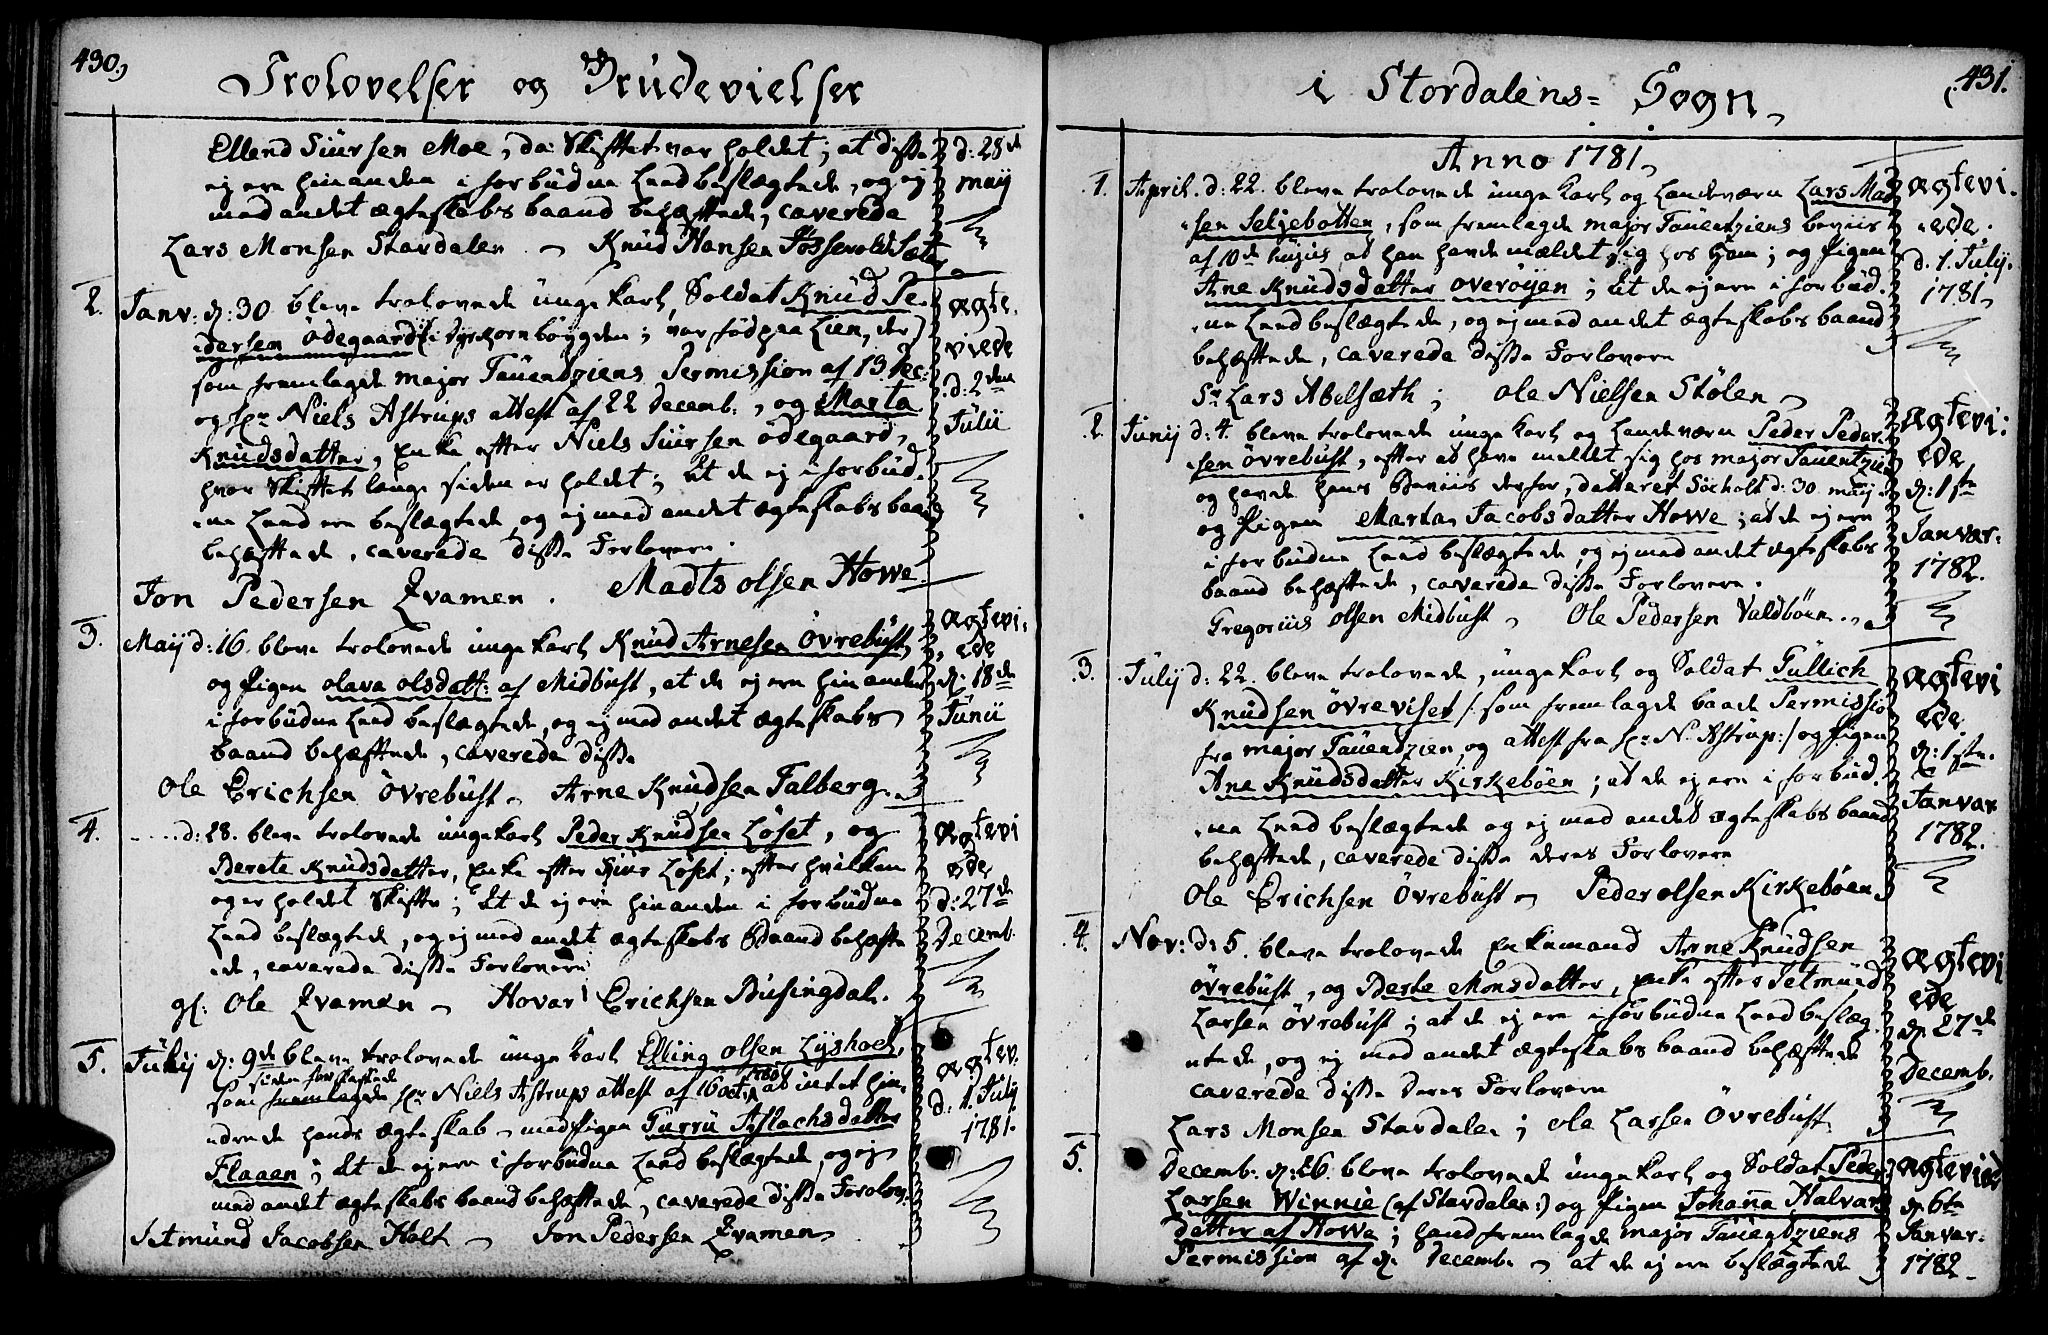 430.
Trolovelser og Brudevielser
Ellend Siursen Moe, da Skiftet var holdet; at disse
ej ere hinanden i forbudne Leed beslægtede, og ej
med andet ægteskabs baand behæftede, caverede
Lars Monsen Stavdalen - Knud Hansen
d: 28de
maij
2. Janv: d: 30 bleve trolovede unge karl, Soldat Knud Pe-
dersen Ödegaard (i Dyrkornbøygden; var föd paa Lien, der)
som fremlagde major Tauentziens Permission af 13 Dec:
og hr: Niels Astrups attest af 22 Decemb:, og Marta
Knudsdatter, Enke efter Niels Siursen Ödegaard,
hvor Skiftet længe siden er holdet; At de ej i forbud-
ne Leed ere beslægtede og ej med andet ægteskabs baand
behæftede, caverede disse Forlovere.
Jon Pedersen Kvamen. Madts olsen Howe.
ægte-
viede
d: 2den
Julii
3. Maij d: 16. bleve trolovede unge karl Knud Arnesen Övrebust,
og Pigen Olava olsdatt: af Midbust, at de ej ere hinanden
i forbudne Leed beslægtede, og ej med andet ægteskabs
baand behæftede, caverede disse
Ole Erichsen Övrebust - Arne Knudsen Falberg.
ægtevi-
ede
d: 18de
Junii
4. ..... d: 28. bleve trolovede unge karl Peder Knudsen Löset, og
Berete Knudsdatter, Enke efter Siur Löset; efter hvilken
og er holdet Skifte; At de ej ere hinanden i forbudne
Leed beslægtede, og ej med andet ægteskabs Baand behæfte-
de, caverede disse Forlovere
gl: Ole Kvamen - Hovar Erichsen Busingdal.
ægtevi
ede
d: 27de
Decemb.
5. Julij d: 9de bleve trolovede unge karl Elling olsen Lyshoel,
siden forskaffede
som fremlagde hr: Niels Astrups attest af 16 oct: 1780 at intet hin-
drede hands ægteskab - med Pigen Turru Aslachsdatter
Flaaen; At de ej ere i forbudne Leed beslægtede, og ej
med andet ægteskabs baand behæftede, caverede disse Forlov:
Setmund Jacobsen Holt - Jon Pedersen Kvamen
ægtev.
d: 1. July
1781.
431.
i Stordalens= Sogn
Anno 1781
1. April. d: 22. bleve trolovede unge karl og Landeværn Lars Mad-
sen Seljebotten, som fremlagde major Tauentziens beviis
af 10de hujus at han havde mældet sig hos Ham; og Pigen
Ane Knudsdatter overöyen; At de ej ere i forbud-
ne Leed beslægtede, og ej med andet ægteskabs baand
behæftede, caverede disse Forlovere
Sr Lars Abelsæth; ole Nielsen Stölen
ægtevi-
ede.
d. 1. July.
1781
2. Junij d: 4. bleve trolovede unge karl og Landeværn Peder Peder-
sen övrebust, efter at have meldet sig hos major Tauentzien
og havde hans Beviis derfor, datteret Söeholt d: 30. maij
og Pigen Marta Jacobsdatter Howe; at de ej ere
i forbudne Leed beslægtede, og ej med andet ægteskabs
baand behæftede, caverede disse Forlovere.
Gregorius olsen Midbust - Ole Pedersen Valdböen.
ægtevi:
ede
d: 1ste
Janvar:
1782.
3. Julij d: 22. bleve trolovede, unge karl og Soldat Tullich
Knudsen övreviset /: som fremlagde baade Permissio
fra major Tauentzien og attest fra hr: N. Astrup :/ og Pigen
Ane Knudsdatter Kirkeböen; at de ej ere i forbud-
ne Leed beslægtede og ej med andet ægteskabs baand
behæftede, caverede disse deres Forlovere
Ole Erichsen Övrebust - Peder olsen Kirkeböen
ægtevi
ede
d: 1ste.
Janvar
1782.
4. Nov: d: 5. bleve trolovede Enkemand Arne Knudsen
övrebust, og Berte Monsdatter, Enke efter Setmund
Larsen övrebust; at de ej ere i forbudne Leed beslæg-
tede, og ej med andet ægteskabs baand behæftede
caverede disse deres Forlovere
Lars Monsen Stavdalen; ole Larsen Övrebust
ægtevi
ede
d. 27de
Decemb.
5. Decemb: d: 26. bleve trolovede unge karl og Soldat Peder
Larsen Winnie (af Stavdalen:) og Pigen Johanna Halvars
datter af Howe; hand fremlagde major Tauentziens
Permission af d. Decemb: - at de ej ere beslægtede
ægteviede
d. 6te
Janvar:
1782